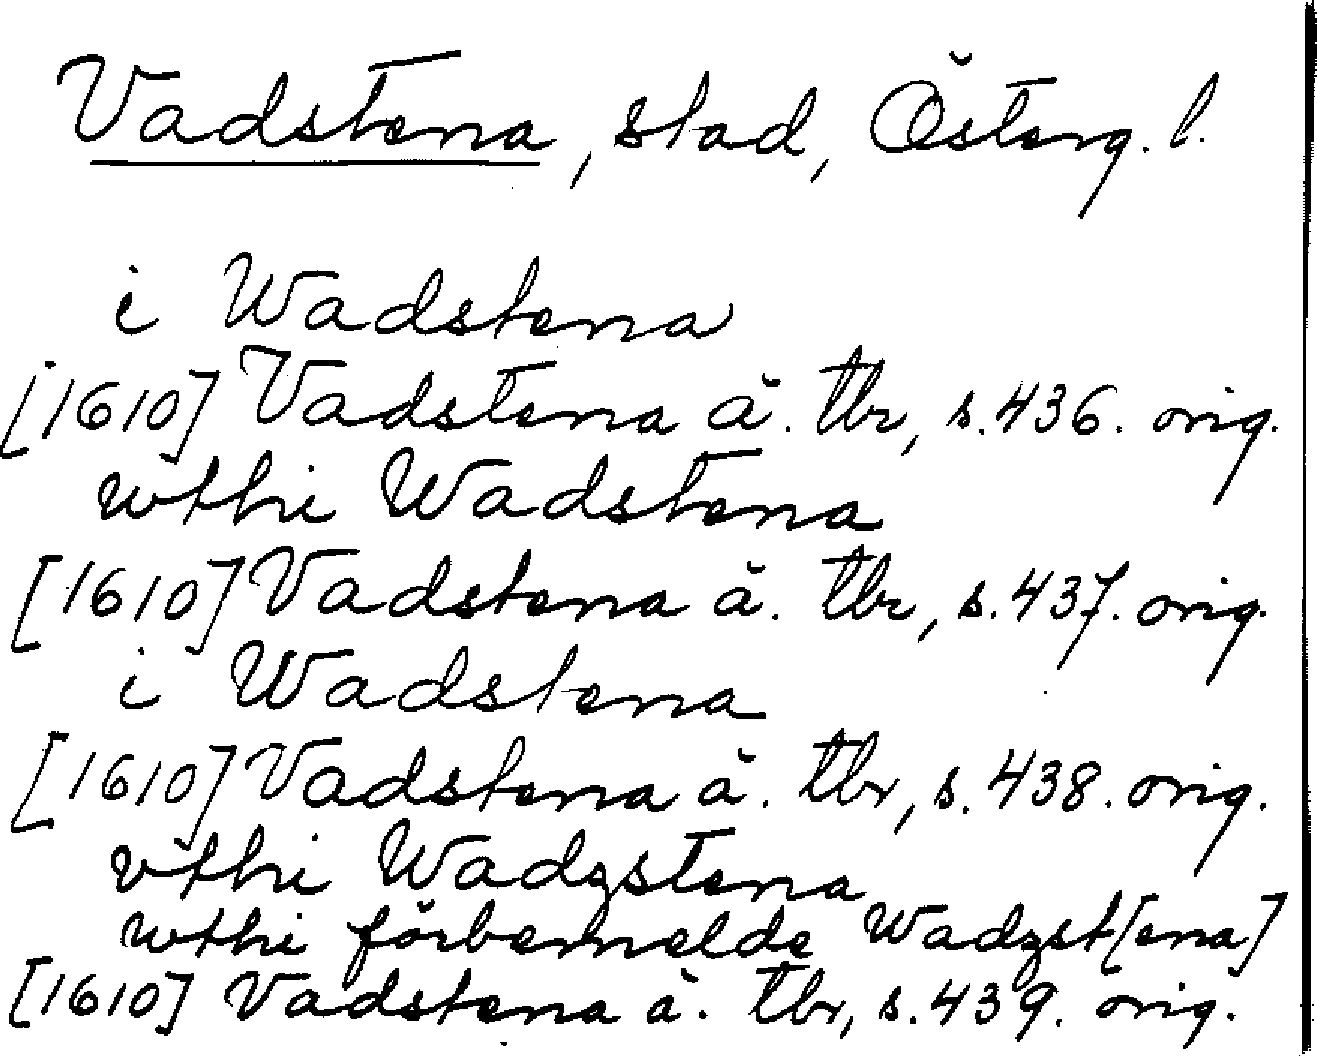 Vadstena, stad, Österg. l.
i Wadstena
[1610] Vadstena ä. tbr, s. 436. orig.
wthi Wadstena
[1610] Vadstena ä. tbr, s. 437. orig.
i Wadstena
[1610] Vadstena ä. tbr, s. 438. orig.
vthi Wadzstena
wthi förbemelde Wadzst[ena]
[1610] Vadstena ä. tbr, s. 439. orig.